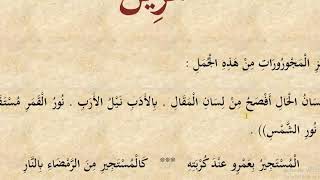 الْمَجْرُورَاتِ مِنْ هَذِهِ الْجُمَلِ :
الْحَالِ أَفْصَحُ مِنْ لِسَانِ الْمَقَالِ . بِالأَدَبِ نَيْلُ الأَرَبِ . نُورُ الْقَمَرِ
نُورِ الشَّمْسِ)) .
الْمُسْتَجِيرُ بِعَمْرٍو عِنْدَ كُرْبَتِهِ *** كَالْمُسْتَجِيرِ مِنَ الرَّمْضَاءِ بِالنَّارِ